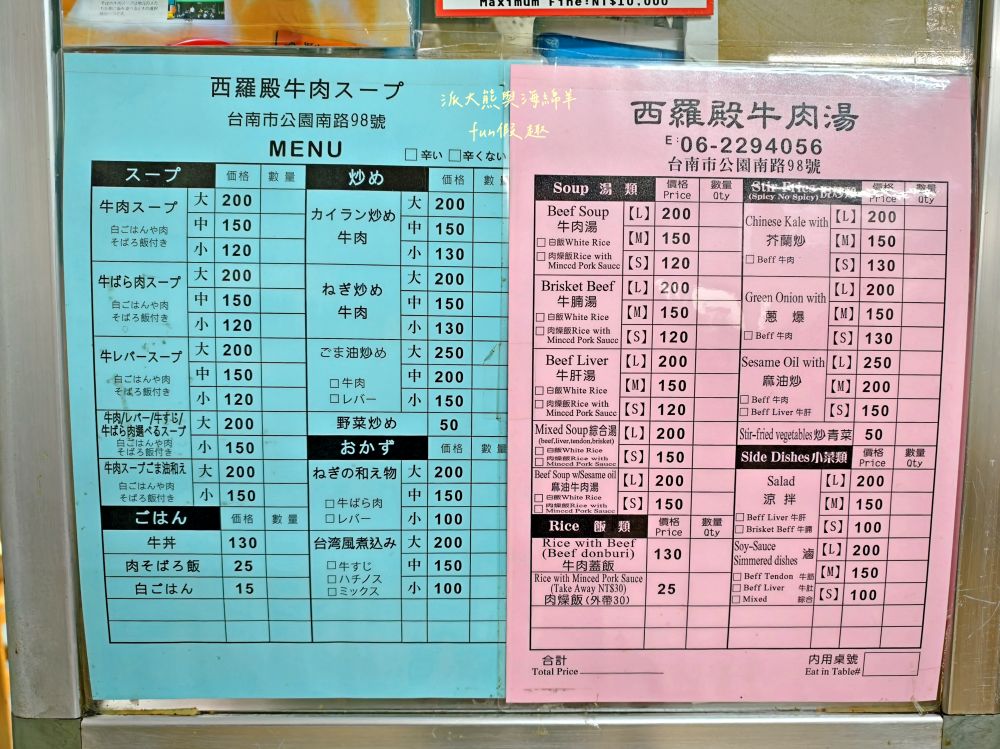 Maximum Fine:NT$10,000
西羅殿牛肉スープ
台南市公園南路98號
MENU
□辛い □辛くない
スープ 価格 數量
牛肉スープ 大 200
白ごはんや肉そぼろ飯付き 中 150
小 120
牛ばら肉スープ 大 200
白ごはんや肉そぼろ飯付き 中 150
小 120
牛レバースープ 大 200
白ごはんや肉そぼろ飯付き 中 150
小 120
牛肉/レバー/牛すじ/牛ばら肉選べるスープ 大 200
白ごはんや肉そぼろ飯付き 小 150
牛肉スープごま油和え 大 200
白ごはんや肉そぼろ飯付き 小 150
ごはん 価格 數量
牛丼 130
肉そぼろ飯 25
白ごはん 15
炒め 価格
カイラン炒め 大 200
牛肉 中 150
小 130
ねぎ炒め 大 200
牛肉 中 150
小 130
ごま油炒め 大 250
□牛肉 中 200
□レバー 小 150
野菜炒め 50
おかず 価格 數量
ねぎの和え物 大 200
□牛ばら肉 中 150
□レバー 小 100
台湾風煮込み 大 200
□牛すじ 中 150
□ハチノス
□ミックス 小 100
派大熊與海綿羊
fun假趣
西羅殿牛肉湯
06-2294056
台南市公園南路98號
Soup 湯類 價格 Price 數量 Qty
Beef Soup 【L】 200
牛肉湯
□白飯White Rice 【M】 150
□肉燥飯Rice with Minced Pork Sauce 【S】 120
Brisket Beef 【L】 200
牛腩湯
□白飯White Rice 【M】 150
□肉燥飯Rice with Minced Pork Sauce 【S】 120
Beef Liver 【L】 200
牛肝湯
□白飯White Rice 【M】 150
□肉燥飯Rice with Minced Pork Sauce 【S】 120
Mixed Soup綜合湯 【L】 200
(beef,liver,tendon,brisket)
□白飯White Rice
□肉燥飯Rice with Minced Pork Sauce 【S】 150
Beef Soup w/Sesame oil 【L】 200
麻油牛肉湯
□白飯White Rice
□肉燥飯Rice with Minced Pork Sauce 【S】 150
Rice 飯類 價格 Price 數量 Qty
Rice with Beef
(Beef donburi) 130
牛肉蓋飯
Rice with Minced Pork Sauce
(Take Away NT$30) 25
肉燥飯(外帶30)
Stir Fries 價格 Price 數量 Qty
(Spicy No Spicy)
Chinese Kale with 【L】 200
芥蘭炒 【M】 150
□Beff 牛肉 【S】 130
Green Onion with 【L】 200
蔥爆 【M】 150
□Beff 牛肉 【S】 130
Sesame Oil with 【L】 250
麻油炒 【M】 200
□Beff 牛肉
□Beff Liver 牛肝 【S】 150
Stir-fried vegetables炒青菜 50
Side Dishes小菜類 價格 Price 數量 Qty
Salad 【L】 200
涼拌 【M】 150
□Beff Liver 牛肝
□Brisket Beff 牛腩 【S】 100
Soy-Sauce Simmered dishes 滷 【L】 200
□Beff Tendon 牛筋 【M】 150
□Beff Liver 牛肚
□Mixed 綜合 【S】 100
合計
Total Price
内用桌號
Eat in Table#